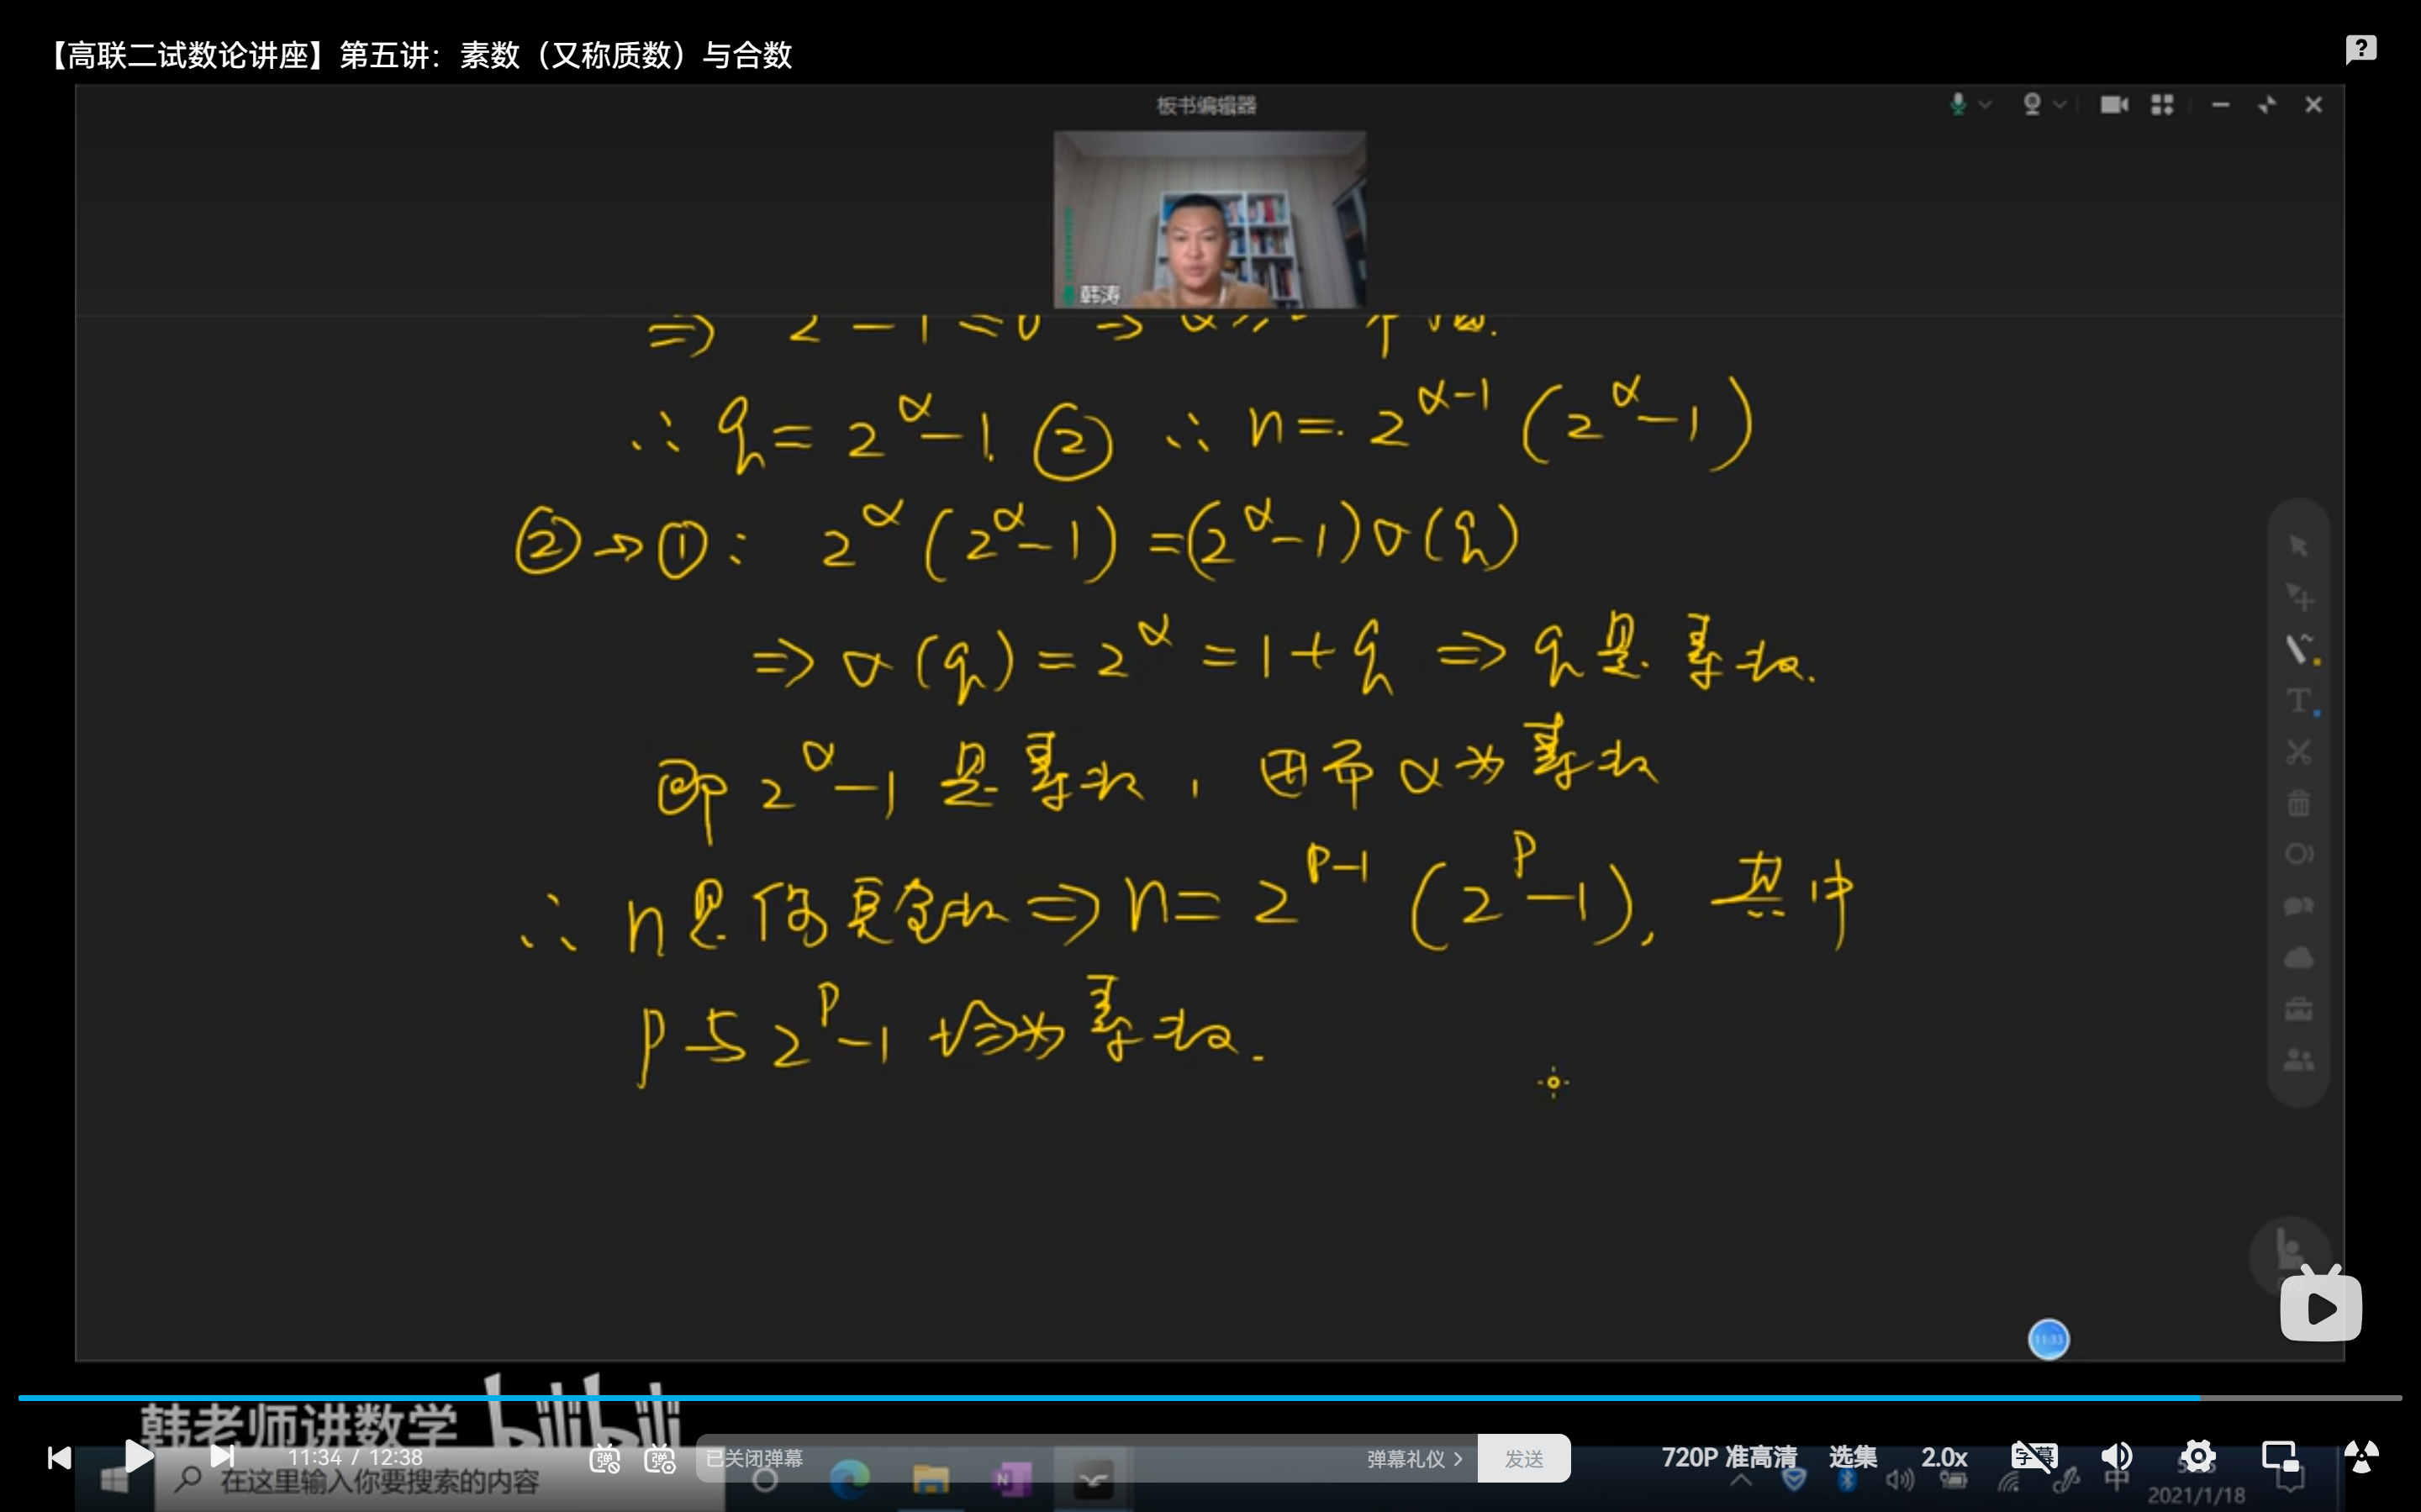 【高联二试数论讲座】第五讲：素数（又称质数）与合数
板书编辑器
韩涛
∴ q = 2^α - 1. ② ∴ n = 2^(α-1) (2^α - 1)
② → ①： 2^α (2^α - 1) = (2^α - 1) σ(q)
⇒ σ(q) = 2^α = 1 + q ⇒ q 是素数.
即 2^α - 1 是素数， 因而 α 为素数
∴ n 是偶完全数 ⇒ n = 2^(p-1) (2^p - 1), 其中
p 与 2^p - 1 均为素数.
11:33
韩老师讲数学 bilibili
11:34 / 12:38
弹
弹
已关闭弹幕
弹幕礼仪 >
发送
720P 准高清
选集
2.0x
字幕
在这里输入你要搜索的内容
N
中
2021/1/18